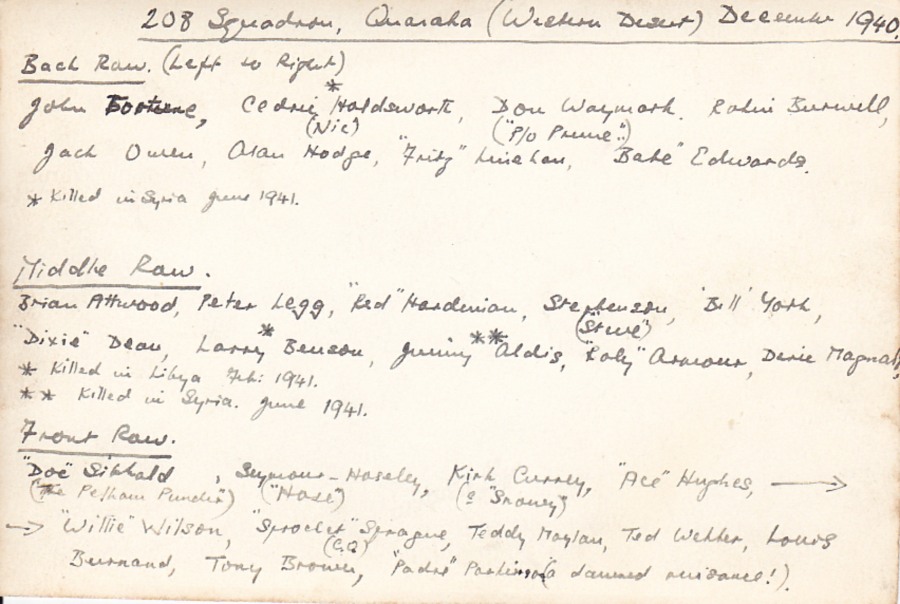 208 Squadron, Quasaba (Western Desert) December 1940.
Back Row. (Left to Right)
John Fortune, Cedric * Holdsworth, Don Waymark. Robin Burwell,
(Nic) ("P/O Prune":)
Jack Owen, Alan Hodge, "Fritz" Linehan, "Babe" Edwards.
* Killed in Syria June 1941.
Middle Row.
Brian Attwood, Peter Legg, "Red" Hardiman, Stephenson, 'Bill' York,
("Steve")
"Dixie" Dean, Larry * Benson, Jimmy ** Aldis, "Roly" Armour, Derie Magnall,
* Killed in Libya Feb: 1941.
** Killed in Syria. June 1941.
Front Row.
"Doc" Sibbald, Seymour-Hoseley, Kirk Currey, "Ace" Hughes, →
(The Pelham Pundit") ("Hose") (: "Snowey")
→ "Willie" Wilson, "Sprocket" Sprague, Teddy Moylan, Ted Webber, Louis
(C.O)
Burnand, Tony Brown, "Padre" Parkinson (a damned nuisance!).